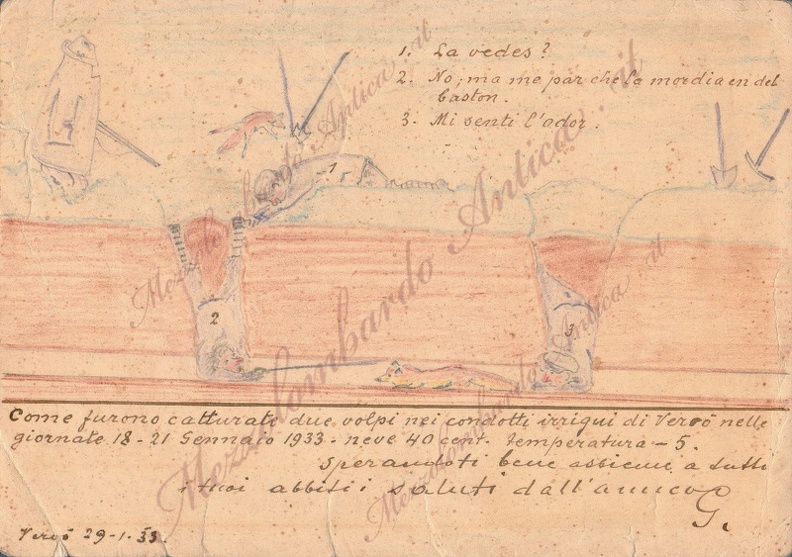 1. La vedes?
2. No, ma me par che la mordia en del
baston.
3. Mi senti l'odor.
1
2
3
Come furono catturate due volpi nei condotti irrigui di Vervò nelle
giornate 18-21 Gennaio 1933 - neve 40 cent. temperatura - 5.
Sperandoti bene assieme a tutti
i tuoi abbiti i saluti dall'amico
G.
Vervò 29-1-33.
Mezzolombardo Antica . it
Mezzolombardo Antica . it
Mezzolombardo Antica . it